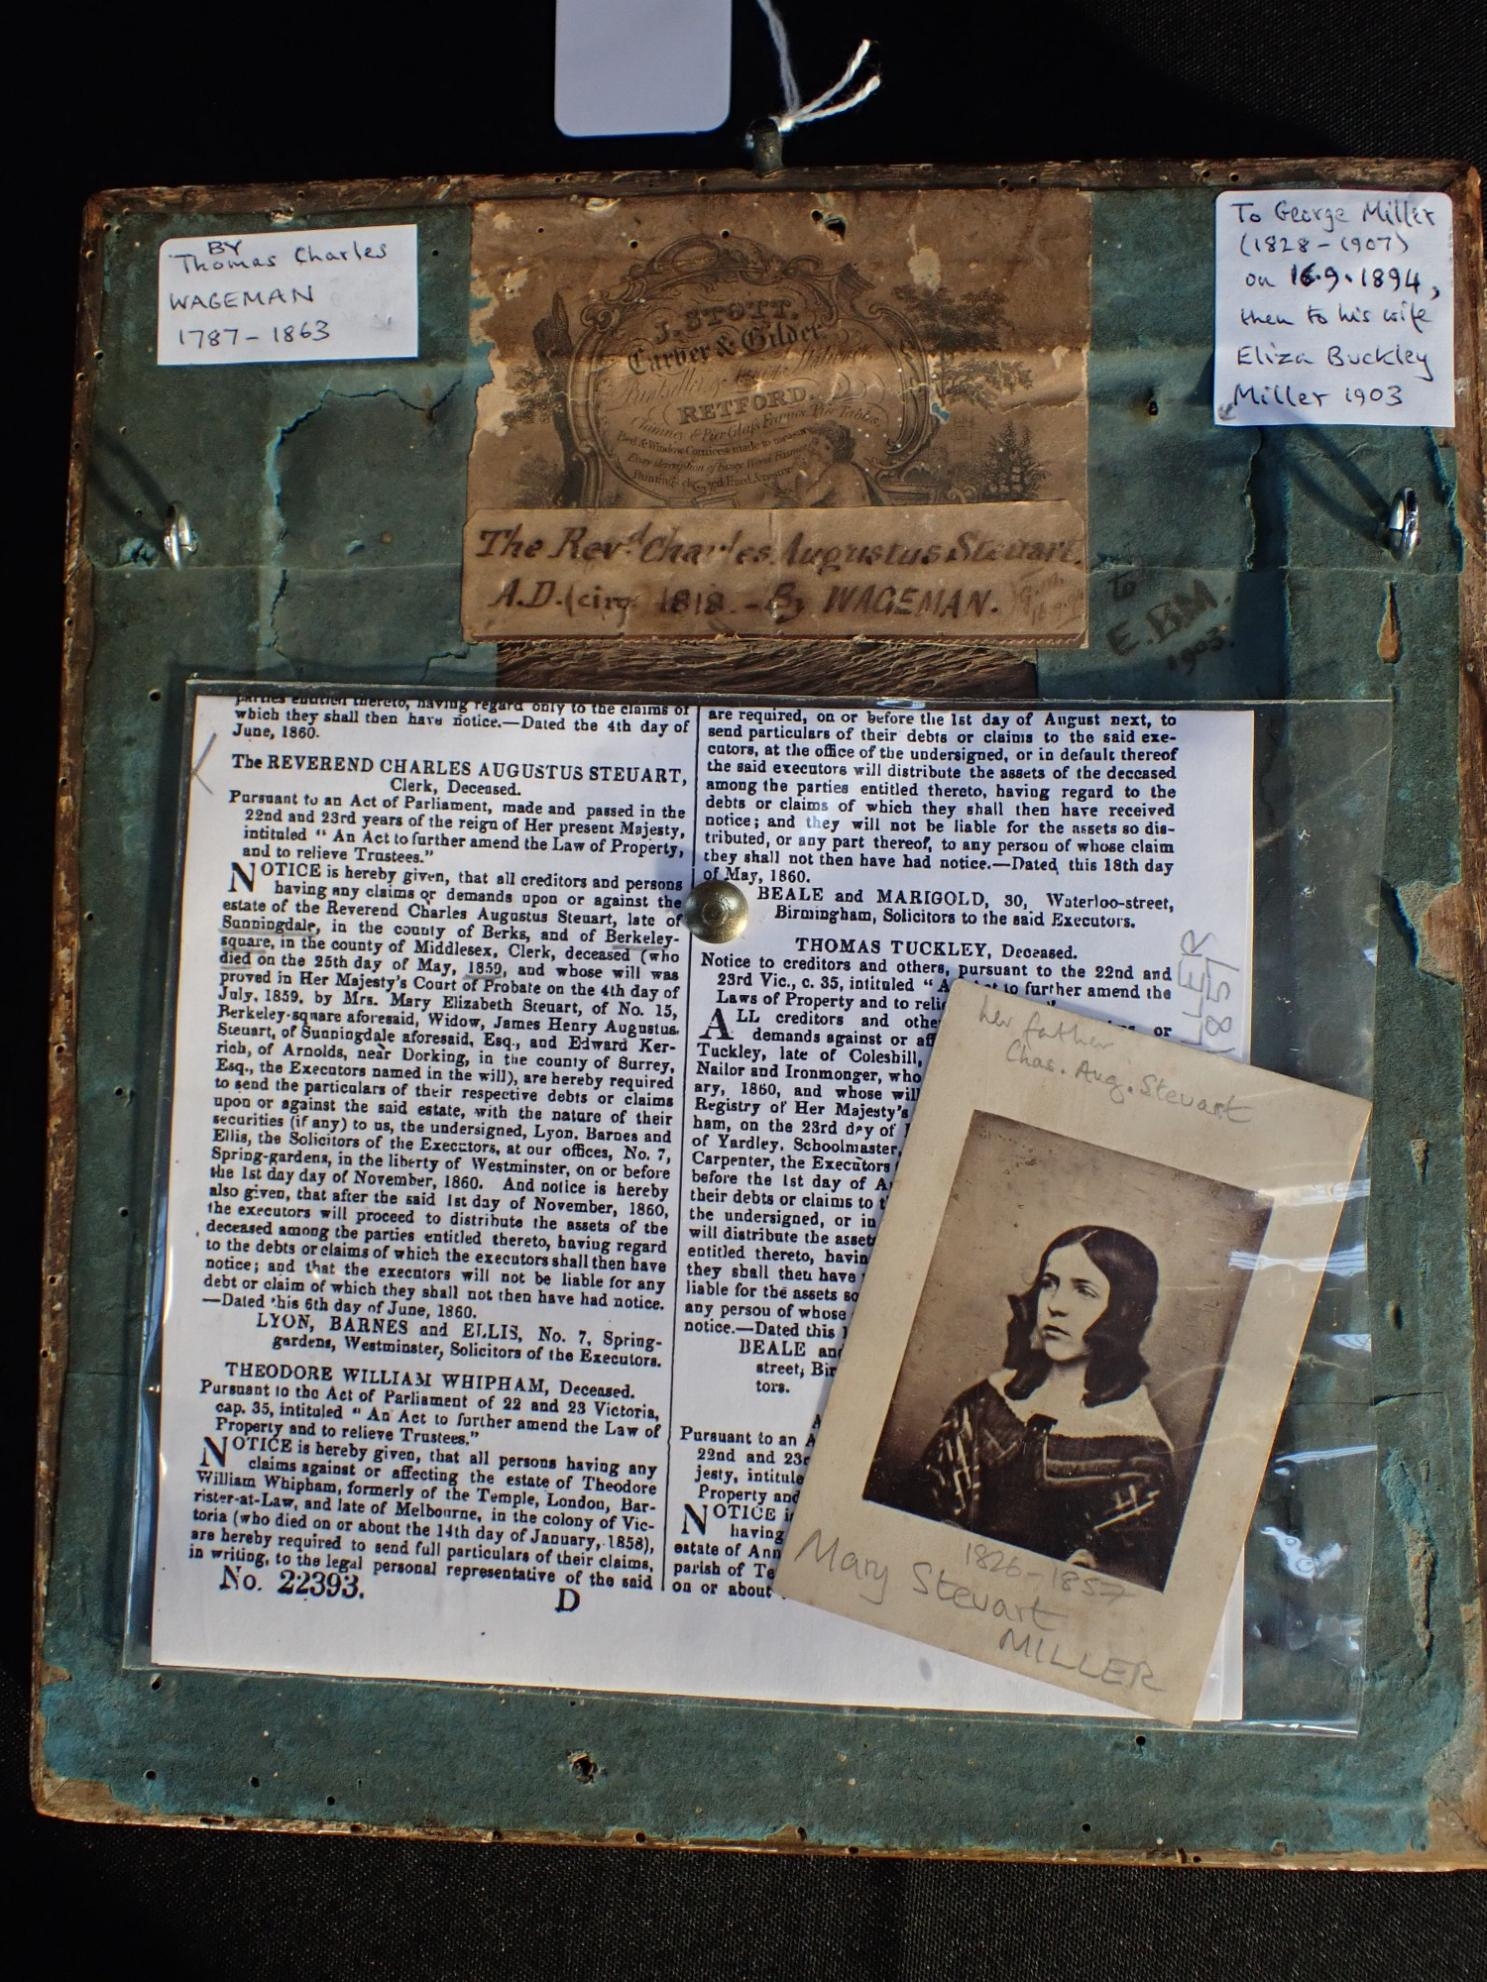 BY
Thomas Charles
WAGEMAN
1787-1863
To George Miller
(1828-1907)
on 16.9.1894,
then to his wife
Eliza Buckley
Miller 1903
J. STOTT,
Carver & Gilder,
RETFORD.
Chimney & Pier Glass Frames, Pier Tables,
Bed & Window Cornices made to measure
Every description of Fancy Wood
The Revd Charles Augustus Steuart.
A.D. (circ. 1818 - By WAGEMAN.
to
E.B.M.
1903.
parties entitled thereto, having regard only to the claims of
which they shall then have notice.—Dated the 4th day of
June, 1860.
The REVEREND CHARLES AUGUSTUS STEUART,
Clerk, Deceased.
Pursuant to an Act of Parliament, made and passed in the
22nd and 23rd years of the reign of Her present Majesty,
intituled "An Act to further amend the Law of Property,
and to relieve Trustees."
NOTICE is hereby given, that all creditors and persons
having any claims or demands upon or against the
estate of the Reverend Charles Augustus Steuart, late of
Sunningdale, in the county of Berks, and of Berkeley-
square, in the county of Middlesex, Clerk, deceased (who
died on the 25th day of May, 1859, and whose will was
proved in Her Majesty's Court of Probate on the 4th day of
July, 1859, by Mrs. Mary Elizabeth Steuart, of No. 15,
Berkeley-square aforesaid, Widow, James Henry Augustus
Steuart, of Sunningdale aforesaid, Esq., and Edward Ker-
rich, of Arnolds, near Dorking, in the county of Surrey,
Esq., the Executors named in the will), are hereby required
to send the particulars of their respective debts or claims
upon or against the said estate, with the nature of their
securities (if any) to us, the undersigned, Lyon, Barnes and
Ellis, the Solicitors of the Executors, at our offices, No. 7,
Spring-gardens, in the liberty of Westminster, on or before
the 1st day day of November, 1860. And notice is hereby
also given, that after the said 1st day of November, 1860,
the executors will proceed to distribute the assets of the
deceased among the parties entitled thereto, having regard
to the debts or claims of which the executors shall then have
notice; and that the executors will not be liable for any
debt or claim of which they shall not then have had notice.
—Dated this 6th day of June, 1860.
LYON, BARNES and ELLIS, No. 7, Spring-
gardens, Westminster, Solicitors of the Executors.
THEODORE WILLIAM WHIPHAM, Deceased.
Pursuant to the Act of Parliament of 22 and 23 Victoria,
cap. 35, intituled "An Act to further amend the Law of
Property and to relieve Trustees."
NOTICE is hereby given, that all persons having any
claims against or affecting the estate of Theodore
William Whipham, formerly of the Temple, London, Bar-
rister-at-Law, and late of Melbourne, in the colony of Vic-
toria (who died on or about the 14th day of January, 1858),
are hereby required to send full particulars of their claims,
in writing, to the legal personal representative of the said
No. 22393.
D
are required, on or before the 1st day of August next, to
send particulars of their debts or claims to the said exe-
cutors, at the office of the undersigned, or in default thereof
the said executors will distribute the assets of the deceased
among the parties entitled thereto, having regard to the
debts or claims of which they shall then have received
notice; and they will not be liable for the assets so dis-
tributed, or any part thereof, to any person of whose claim
they shall not then have had notice.—Dated this 18th day
of May, 1860.
BEALE and MARIGOLD, 30, Waterloo-street,
Birmingham, Solicitors to the said Executors.
THOMAS TUCKLEY, Deceased.
Notice to creditors and others, pursuant to the 22nd and
23rd Vic., c. 35, intituled "A to further amend the
Laws of Property and to
ALL creditors and or
demands against or
Tuckley, late of Coleshill,
Nailor and Ironmonger, who
ary, 1860, and whose will
Registry of Her Majesty's
ham, on the 23rd day of
of Yardley, Schoolmaster,
Carpenter, the Executors
before the 1st day of
their debts or claims to
the undersigned, or in
will distribute the
entitled thereto,
they shall then have
liable for the assets so
any person of whose
notice.—Dated this
BEALE and
street,
tors.
Pursuant to an
22nd and
jesty,
Property and
NOTICE
having
estate of
parish of
on or about
her father
Chas. Aug. Steuart
1826-1857
Mary Steuart
MILLER